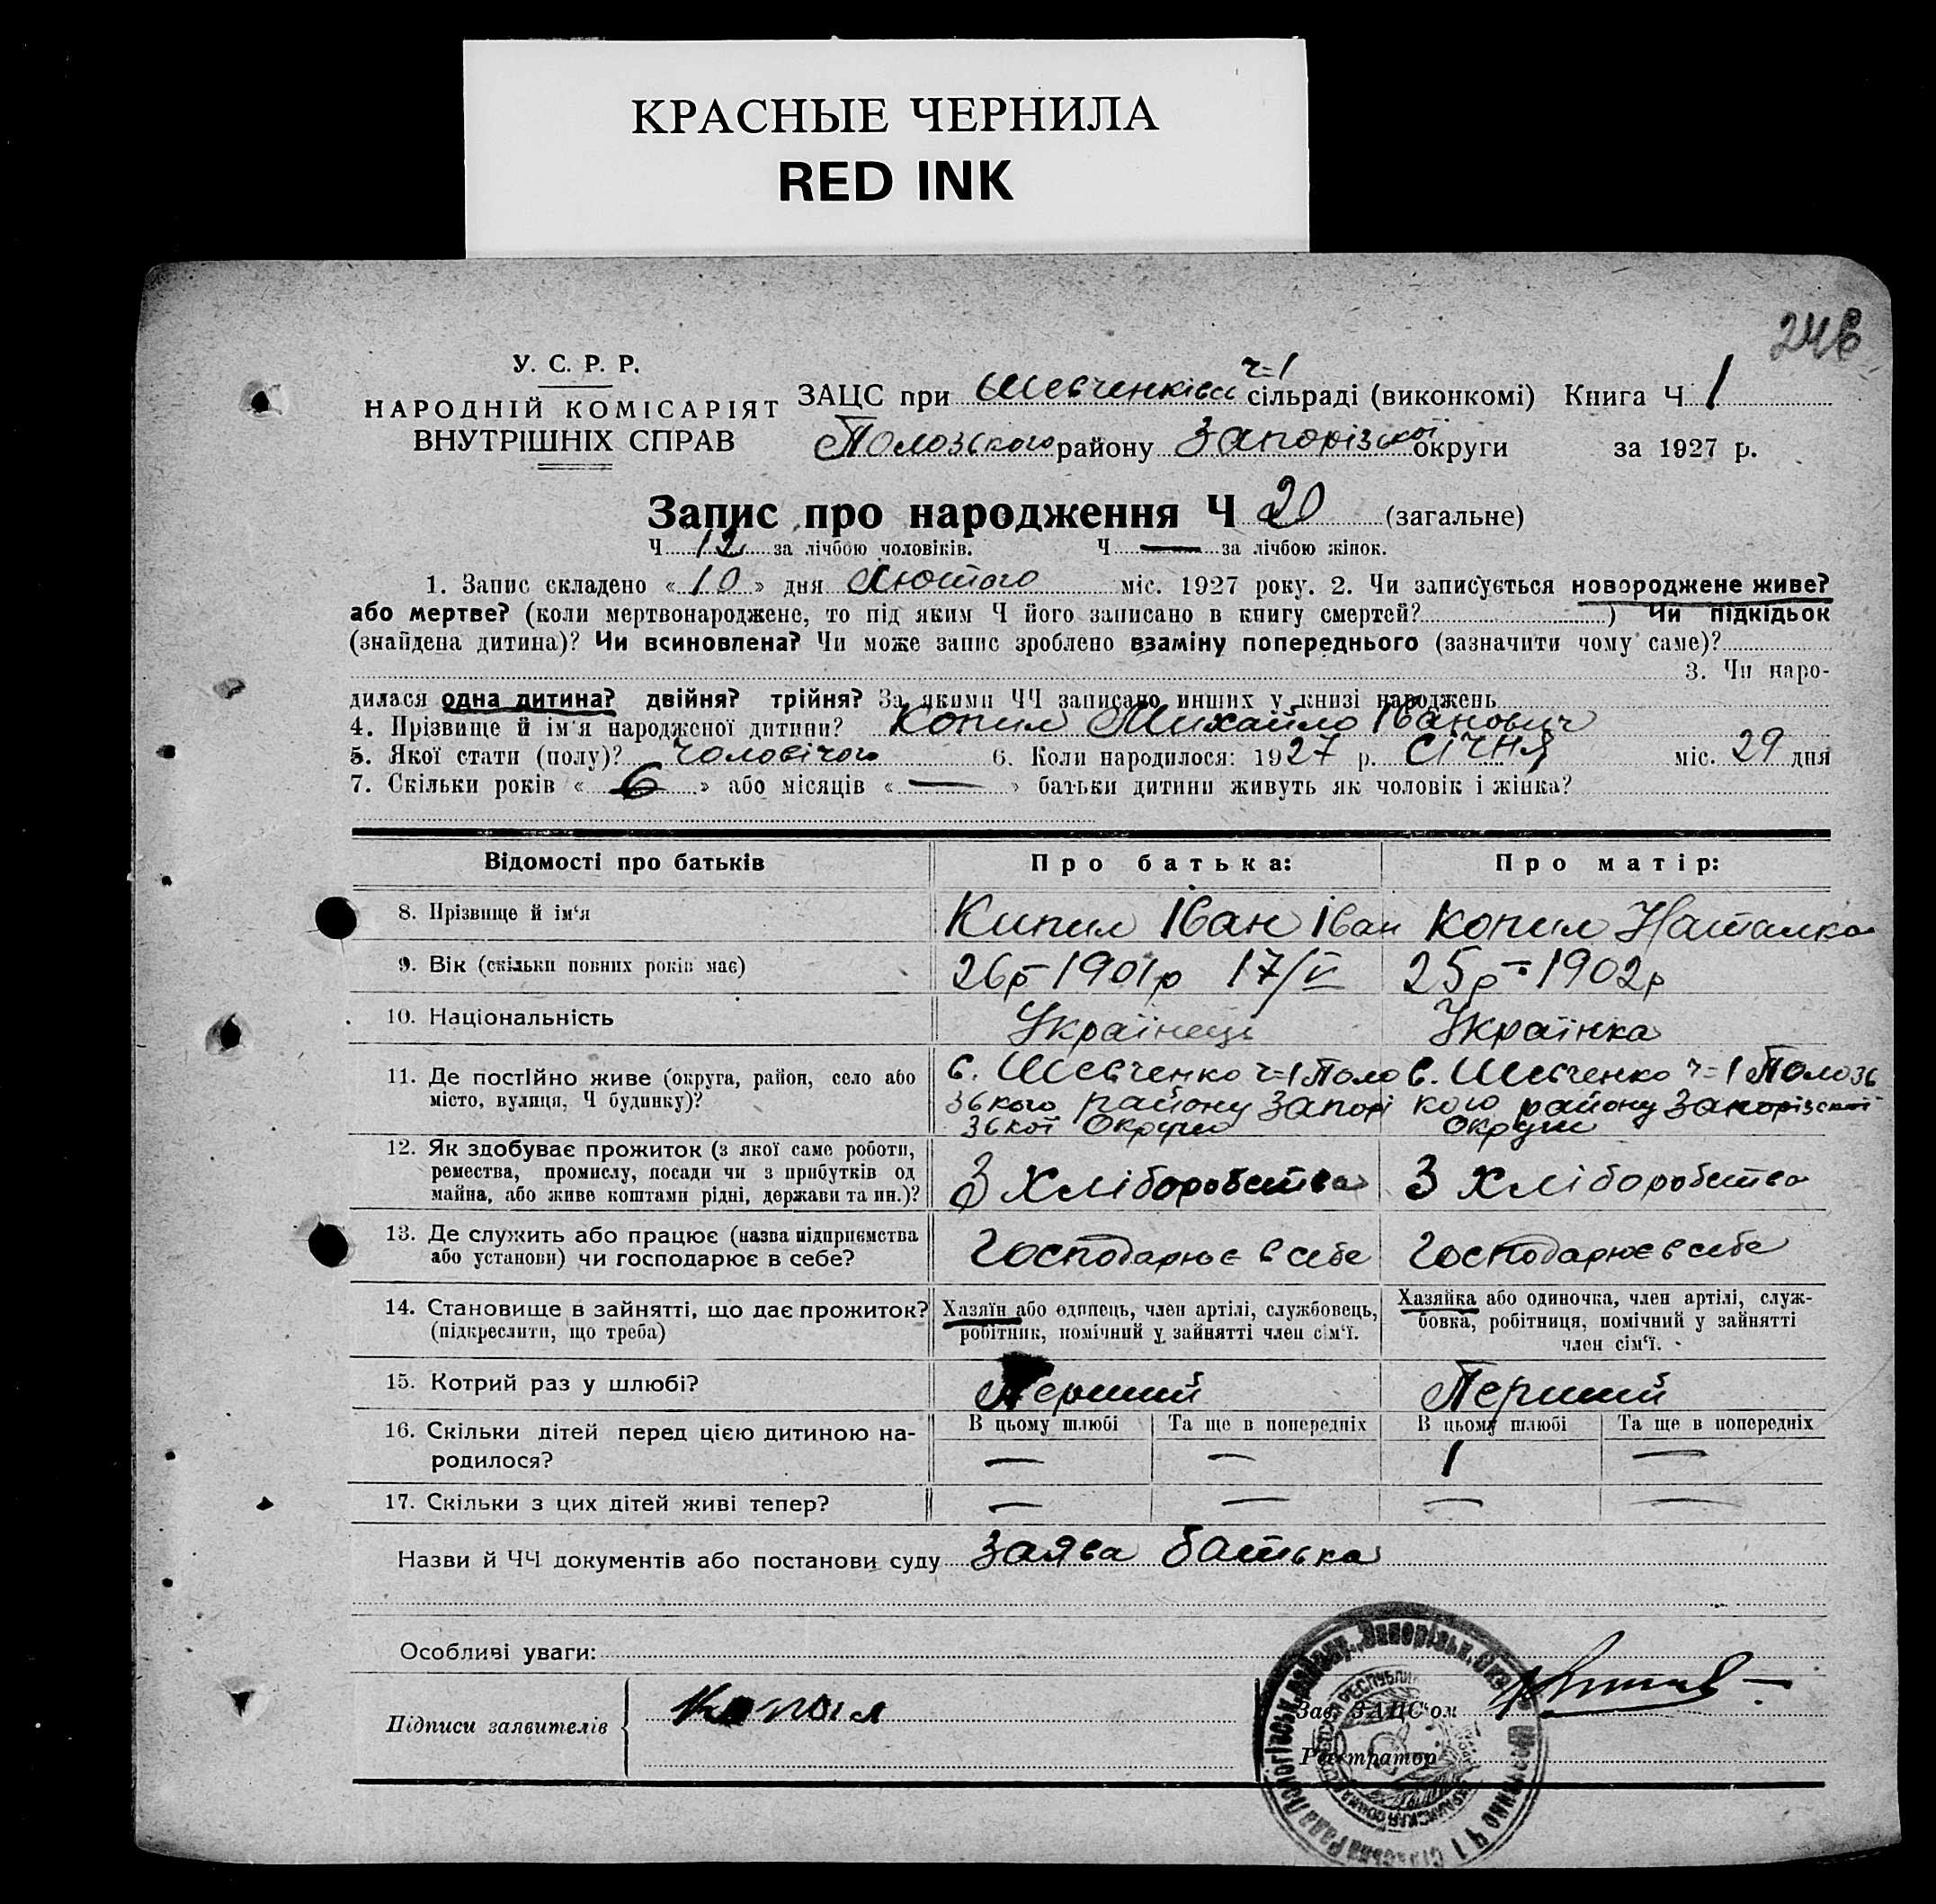 КРАСНЫЕ ЧЕРНИЛА
RED INK
У. С. Р. Р.
НАРОДНІЙ КОМІСАРІЯТ
ВНУТРІШНІХ СПРАВ
ч=1
ЗАЦС при Шевченківсь сільраді (виконкомі) Книга Ч 1
Полозького району Запорізської округи за 1927 р.
Запис про народження Ч 20 (загальне)
Ч 12 за лічбою чоловіків. Ч — за лічбою жінок.
1. Запис складено « 10 » дня Лютого міс. 1927 року. 2. Чи записується новороджене живе?
або мертве? (коли мертвонароджене, то під яким Ч його записано в книгу смертей? ) Чи підкідьок
(знайдена дитина)? Чи всиновлена? Чи може запис зроблено взаміну попереднього (зазначити чому саме)?
3. Чи наро-
дилася одна дитина? двійня? трійня? За якими ЧЧ записано инших у книзі народжень
4. Прізвище й ім'я народженої дитини? Копил Михайло Іванович
5. Якої стати (полу)? Чоловічого 6. Коли народилося: 1927 р. Січня міс. 29 дня
7. Скільки років « 6 » або місяців « — » батьки дитини живуть як чоловік і жінка?
Відомості про батьків Про батька: Про матір:
8. Прізвище й ім'я Кипил Іван Іван Копил Наталка
9. Вік (скільки повних років має) 26р – 1901р 17/V 25р – 1902р
10. Національність Українець Українка
11. Де постійно живе (округа, район, село або місто, вулиця, Ч будинку)? с. Шевченко ч=1 Поло с. Шевченко ч=1 Полозь
зького району Запорі кого району Запорізської
зької Округи Округи
12. Як здобуває прожиток (з якої саме роботи,
ремества, промислу, посади чи з прибутків од
майна, або живе коштами рідні, держави та ин.)? З Хліборобства З Хліборобства
13. Де служить або працює (назва підприємства
або установи) чи господарює в себе? Господарює в себе Господарює в себе
14. Становище в зайнятті, що дає прожиток?
(підкреслити, що треба)
Хазяїн або одинець, член артілі, службовець,
робітник, помічний у зайнятті член сім'ї.
Хазяйка або одиночка, член артілі, служ-
бовка, робітниця, помічний у зайнятті
член сім'ї.
15. Котрий раз у шлюбі? Перший Перший
В цьому шлюбі Та ще в попередніх В цьому шлюбі Та ще в попередніх
16. Скільки дітей перед цією дитиною на-
родилося? — — 1 —
17. Скільки з цих дітей живі тепер? — — — —
Назви й ЧЧ документів або постанови суду Заява батька
Особливі уваги:
Підписи заявителів Копил
Зав. ЗАЦС'ом
Реєстратор